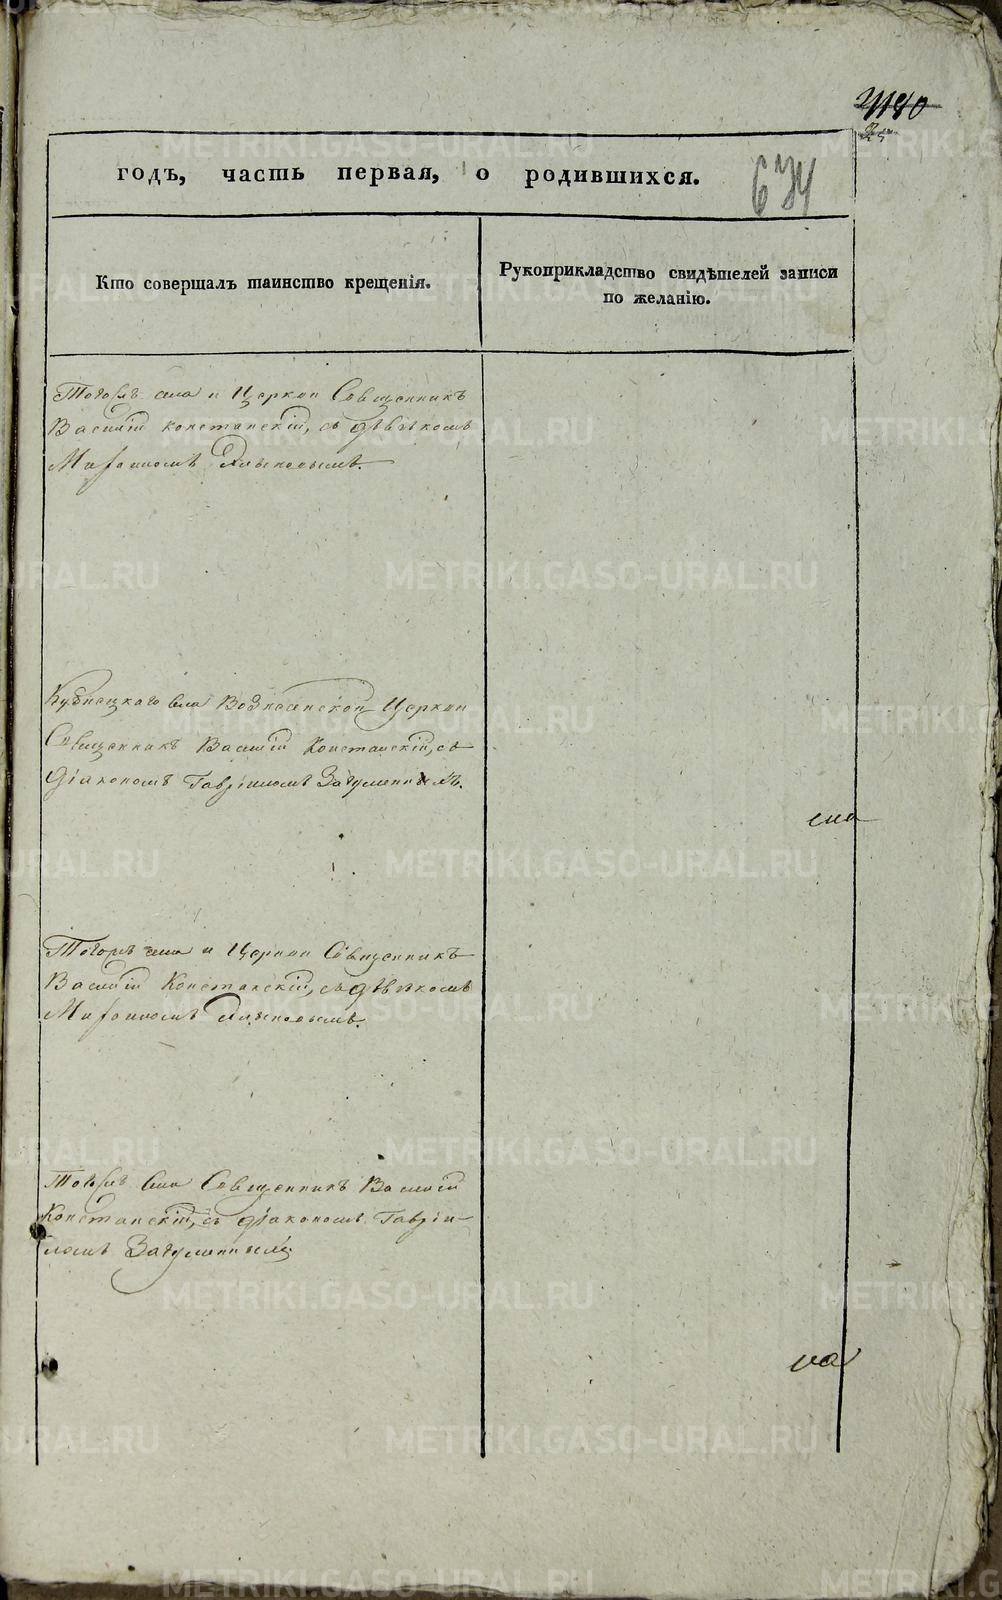 1180
634
годъ, часть первая, о родившихся.
Кто совершалъ таинство крещенія.
Рукоприкладство свидѣтелей записи
по желанію.
Тогожъ села и Церкви Священникъ
Василій Констанскій, съ дьячкомъ
Мирономъ
Кузнецкаго села Вознесенской Церкви
Священникъ Василій Констанскій, съ
діакономъ Гавріиломъ Задуминымъ.
Тогожъ села и Церкви Священникъ
Василій Констанскій, съ дьячкомъ
Мирономъ
Тогожъ села Священникъ Василій
Констанскій, съ діакономъ Гаврі-
ломъ Задуминымъ.
METRIKI.GASO-URAL.RU